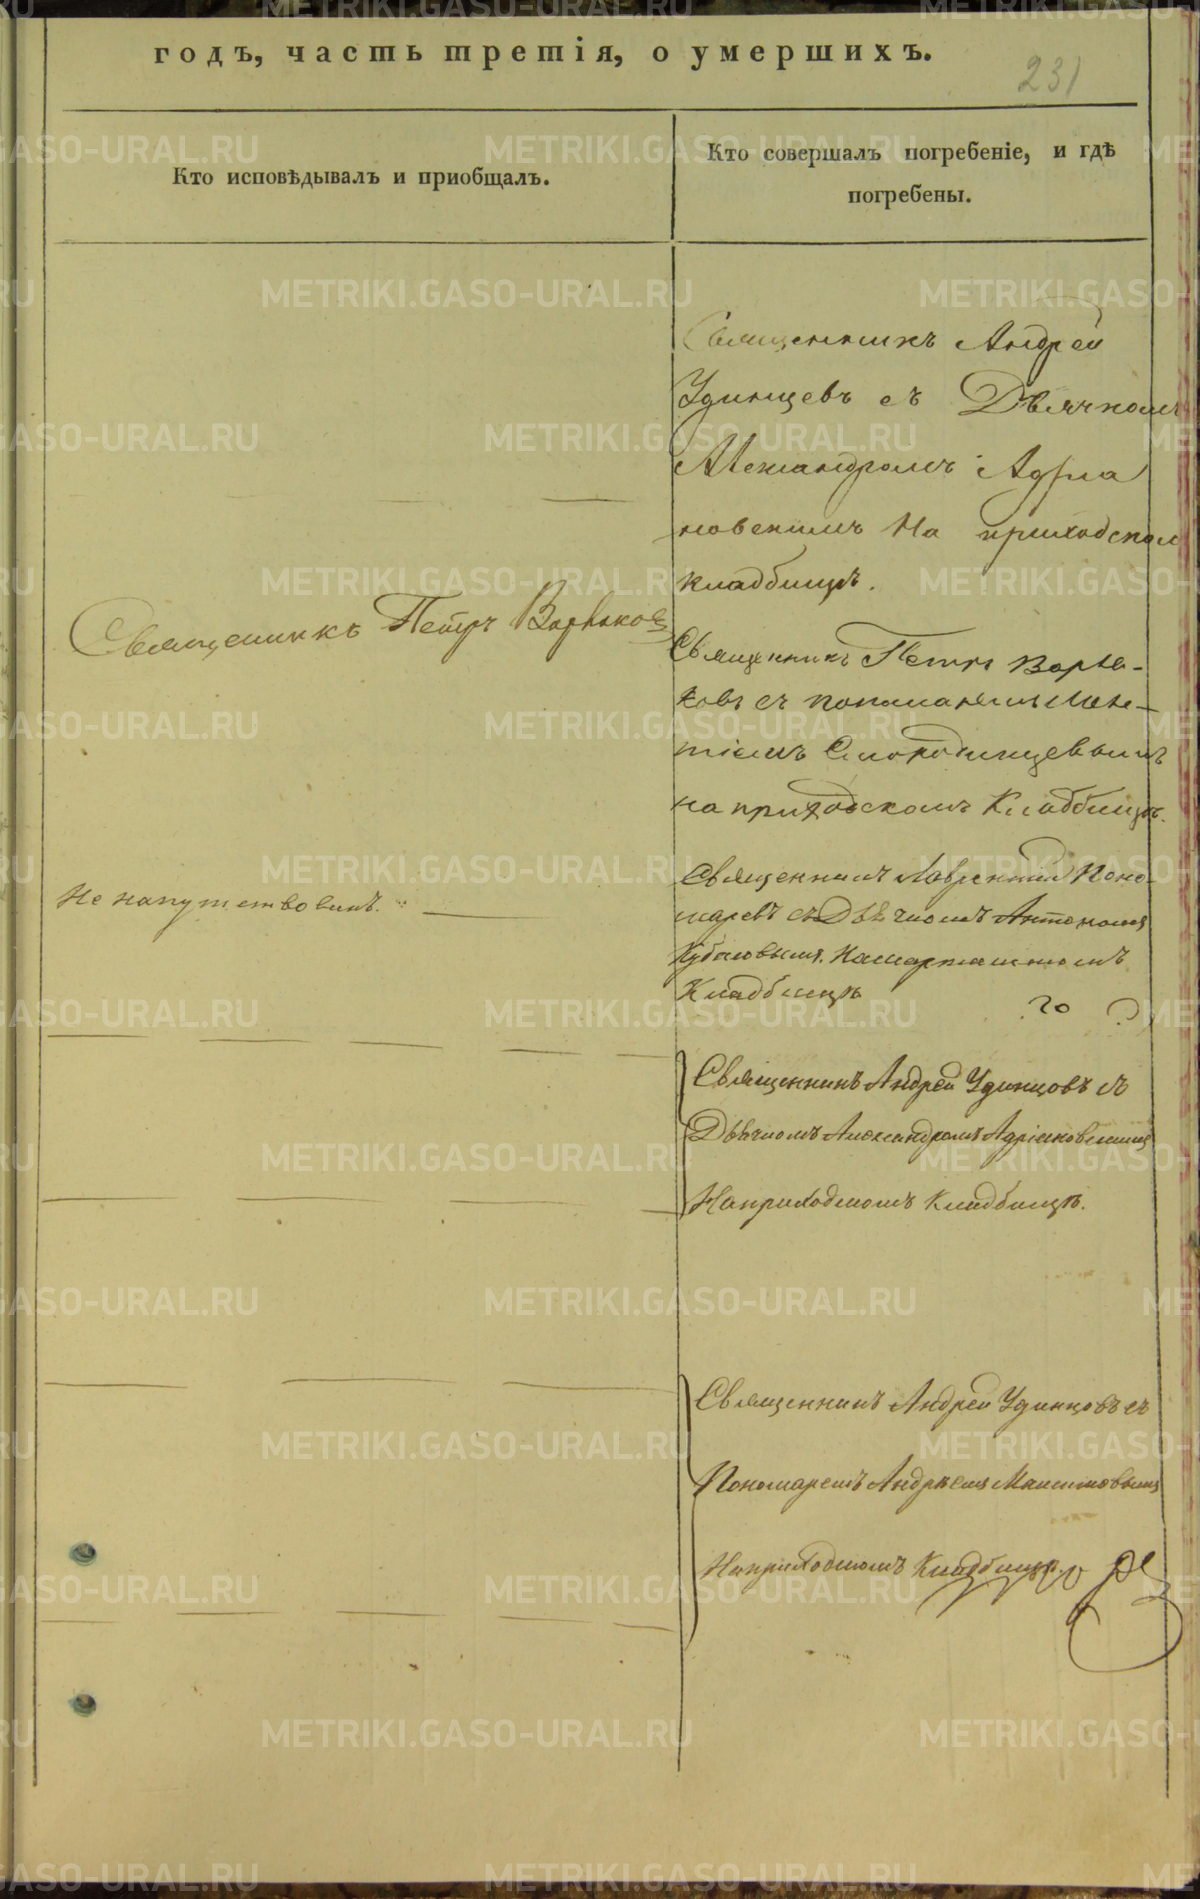 годъ, часть третія, о умершихъ.
231
Кто исповѣдывалъ и пріобщалъ.
Кто совершалъ погребеніе, и гдѣ
погребены.
Священникъ Андрей
Удинцевъ съ Дьячкомъ
Александромъ Адріа
новскимъ На приходском
кладбищѣ.
Священникъ Петръ
Священникъ Петръ
ковъ съ
тіемъ Смородинцевымъ
на приходскомъ Кладбищѣ.
Не напутствованъ.
Священникъ Лаврентій Поно-
маревъ съ Дьячкомъ Антономъ
Кладбищѣ
Священникъ Андрей Удинцовъ съ
Дьячкомъ Александромъ Адріановскимъ
На приходскомъ Кладбищѣ.
Священникъ Андрей Удинцовъ съ
Пономаремъ Андреемъ Максимовымъ
На приходскомъ Кладбищѣ.
METRIKI.GASO-URAL.RU